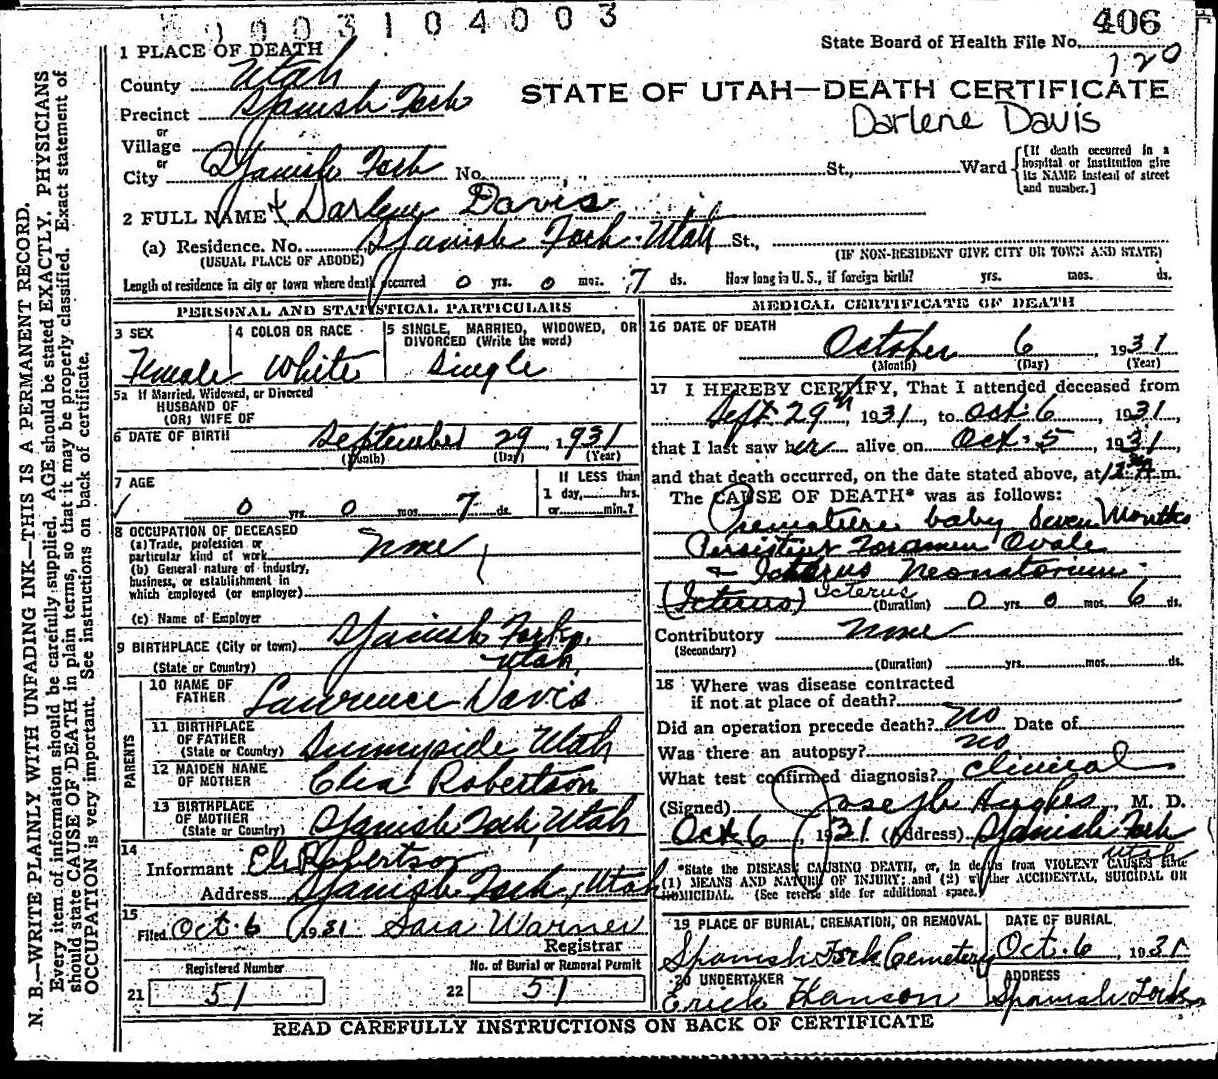 0003104003
406
State Board of Health File No.
120
1 PLACE OF DEATH
County Utah
STATE OF UTAH—DEATH CERTIFICATE
Precinct Spanish Fork
Darlene Davis
or
Village
or
City Spanish Fork No. St., Ward
[If death occurred in a hospital or institution give its NAME instead of street and number.]
2 FULL NAME Darlene Davis
(a) Residence. No. Spanish Fork. Utah St.,
(USUAL PLACE OF ABODE) (IF NON-RESIDENT GIVE CITY OR TOWN AND STATE)
Length of residence in city or town where death occurred 0 yrs. 0 mos. 7 ds. How long in U.S., if foreign birth? yrs. mos. ds.
PERSONAL AND STATISTICAL PARTICULARS
3 SEX
Female
4 COLOR OR RACE
White
5 SINGLE, MARRIED, WIDOWED, OR DIVORCED (Write the word)
Single
5a If Married, Widowed, or Divorced
HUSBAND OF
(OR) WIFE OF
6 DATE OF BIRTH September 29 1931
(Month) (Day) (Year)
7 AGE
0 yrs. 0 mos. 7 ds.
If LESS than
1 day, hrs.
or min.?
8 OCCUPATION OF DECEASED
(a) Trade, profession or
particular kind of work None
(b) General nature of industry,
business, or establishment in
which employed (or employer)
(c) Name of Employer
9 BIRTHPLACE (City or town) Spanish Fork,
(State or Country) Utah
PARENTS
10 NAME OF
FATHER Lawrence Davis
11 BIRTHPLACE
OF FATHER
(State or Country) Sunnyside Utah
12 MAIDEN NAME
OF MOTHER Robertson
13 BIRTHPLACE
OF MOTHER
(State or Country) Spanish Fork, Utah
14
Informant Robertson
Address Spanish Fork, Utah
15
Filed Oct. 6 1931 Sara Warner
Registrar
Registered Number
21 51
No. of Burial or Removal Permit
22 51
MEDICAL CERTIFICATE OF DEATH
16 DATE OF DEATH
October 6, 1931
(Month) (Day) (Year)
17 I HEREBY CERTIFY, That I attended deceased from
Sept. 29th, 1931, to Oct 6, 1931,
that I last saw her alive on Oct. 5, 1931,
and that death occurred, on the date stated above, at 12 30 A m.
The CAUSE OF DEATH* was as follows:
Premature baby Seven Months
Foramen Ovale
+ Icterus Neonatorum
(Icterus) Icterus (Duration) 0 yrs. 0 mos. 6 ds.
Contributory None
(Secondary)
(Duration) yrs. mos. ds.
18 Where was disease contracted
if not at place of death?
Did an operation precede death? no Date of
Was there an autopsy? no
What test confirmed diagnosis? Clinical
(Signed) Joseph Hughes, M. D.
Oct 6, 1931 (Address) Spanish Fork
Utah
*State the DISEASE CAUSING DEATH, or, in deaths from VIOLENT CAUSES state
(1) MEANS AND NATURE OF INJURY; and (2) whether ACCIDENTAL, SUICIDAL OR
HOMICIDAL. (See reverse side for additional space.)
19 PLACE OF BURIAL, CREMATION, OR REMOVAL
Spanish Fork Cemetery
DATE OF BURIAL
Oct. 6, 1931
20 UNDERTAKER
Erick Hanson
ADDRESS
Spanish Fork
READ CAREFULLY INSTRUCTIONS ON BACK OF CERTIFICATE
N. B.—WRITE PLAINLY WITH UNFADING INK—THIS IS A PERMANENT RECORD.
Every item of information should be carefully supplied. AGE should be stated EXACTLY. PHYSICIANS
should state CAUSE OF DEATH in plain terms, so that it may be properly classified. Exact statement of
OCCUPATION is very important. See instructions on back of certificate.